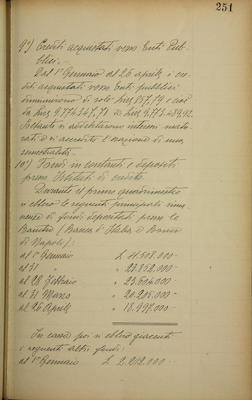 251
9°) Crediti acquistati verso Enti Pub-
blici.-
Dal 1° Gennaio al 26 aprile i cre-
diti acquistati verso Enti pubblici
diminuirono di sole Lire 857,79 e cioè
da Lire 9.774.347,71 a Lire 9.773.489,92.
Soltanto si
ti e si accrebbe l'
10°) Fondi in contanti e depositi
presso Istituti di credito
Durante il primo quadrimestre
si ebbero le seguenti principali rima-
nenze di fondi depositati presso le
Banche (Banca d'Italia e Banco
di Napoli):
al 1° Gennaio £ 41.508.000-
al 31 " 23.852.000-
al 28 Febbraio " 23.604.000-
al 31 Marzo " 20.205.000-
al 26 Aprile " 18.937.000-
In cassa poi si ebbero giacenti
i seguenti altri fondi:
al 1° Gennaio £ 2.202.000-